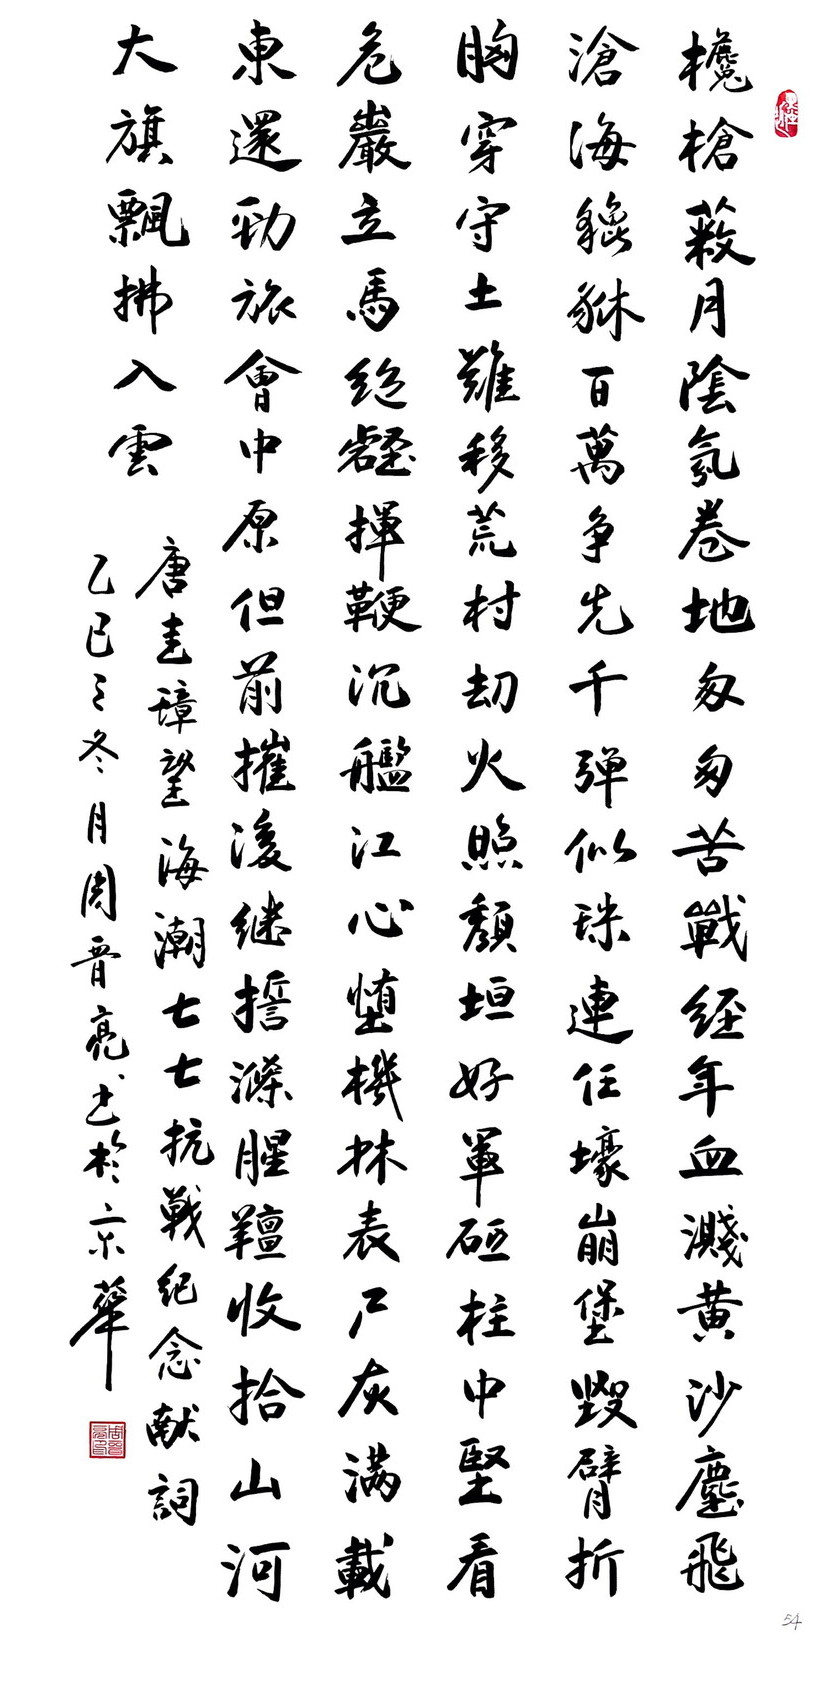 欃槍蔽月陰氛卷地匆匆苦戰經年血濺黃沙塵飛
滄海貔貅百萬爭先千彈似珠連任壕崩堡毀臂折
胸穿守土難移荒村劫火照頹垣好軍砥柱中堅看
危巖立馬絕壑揮鞭沉艦江心墮機林表尸灰满載
東還勁旅會中原但前摧後繼誓滌腥羶收拾山河
大旗飄拂入雲
唐圭璋望海潮七七抗戰紀念献詞
乙巳之冬月周晋亮书於京華
54